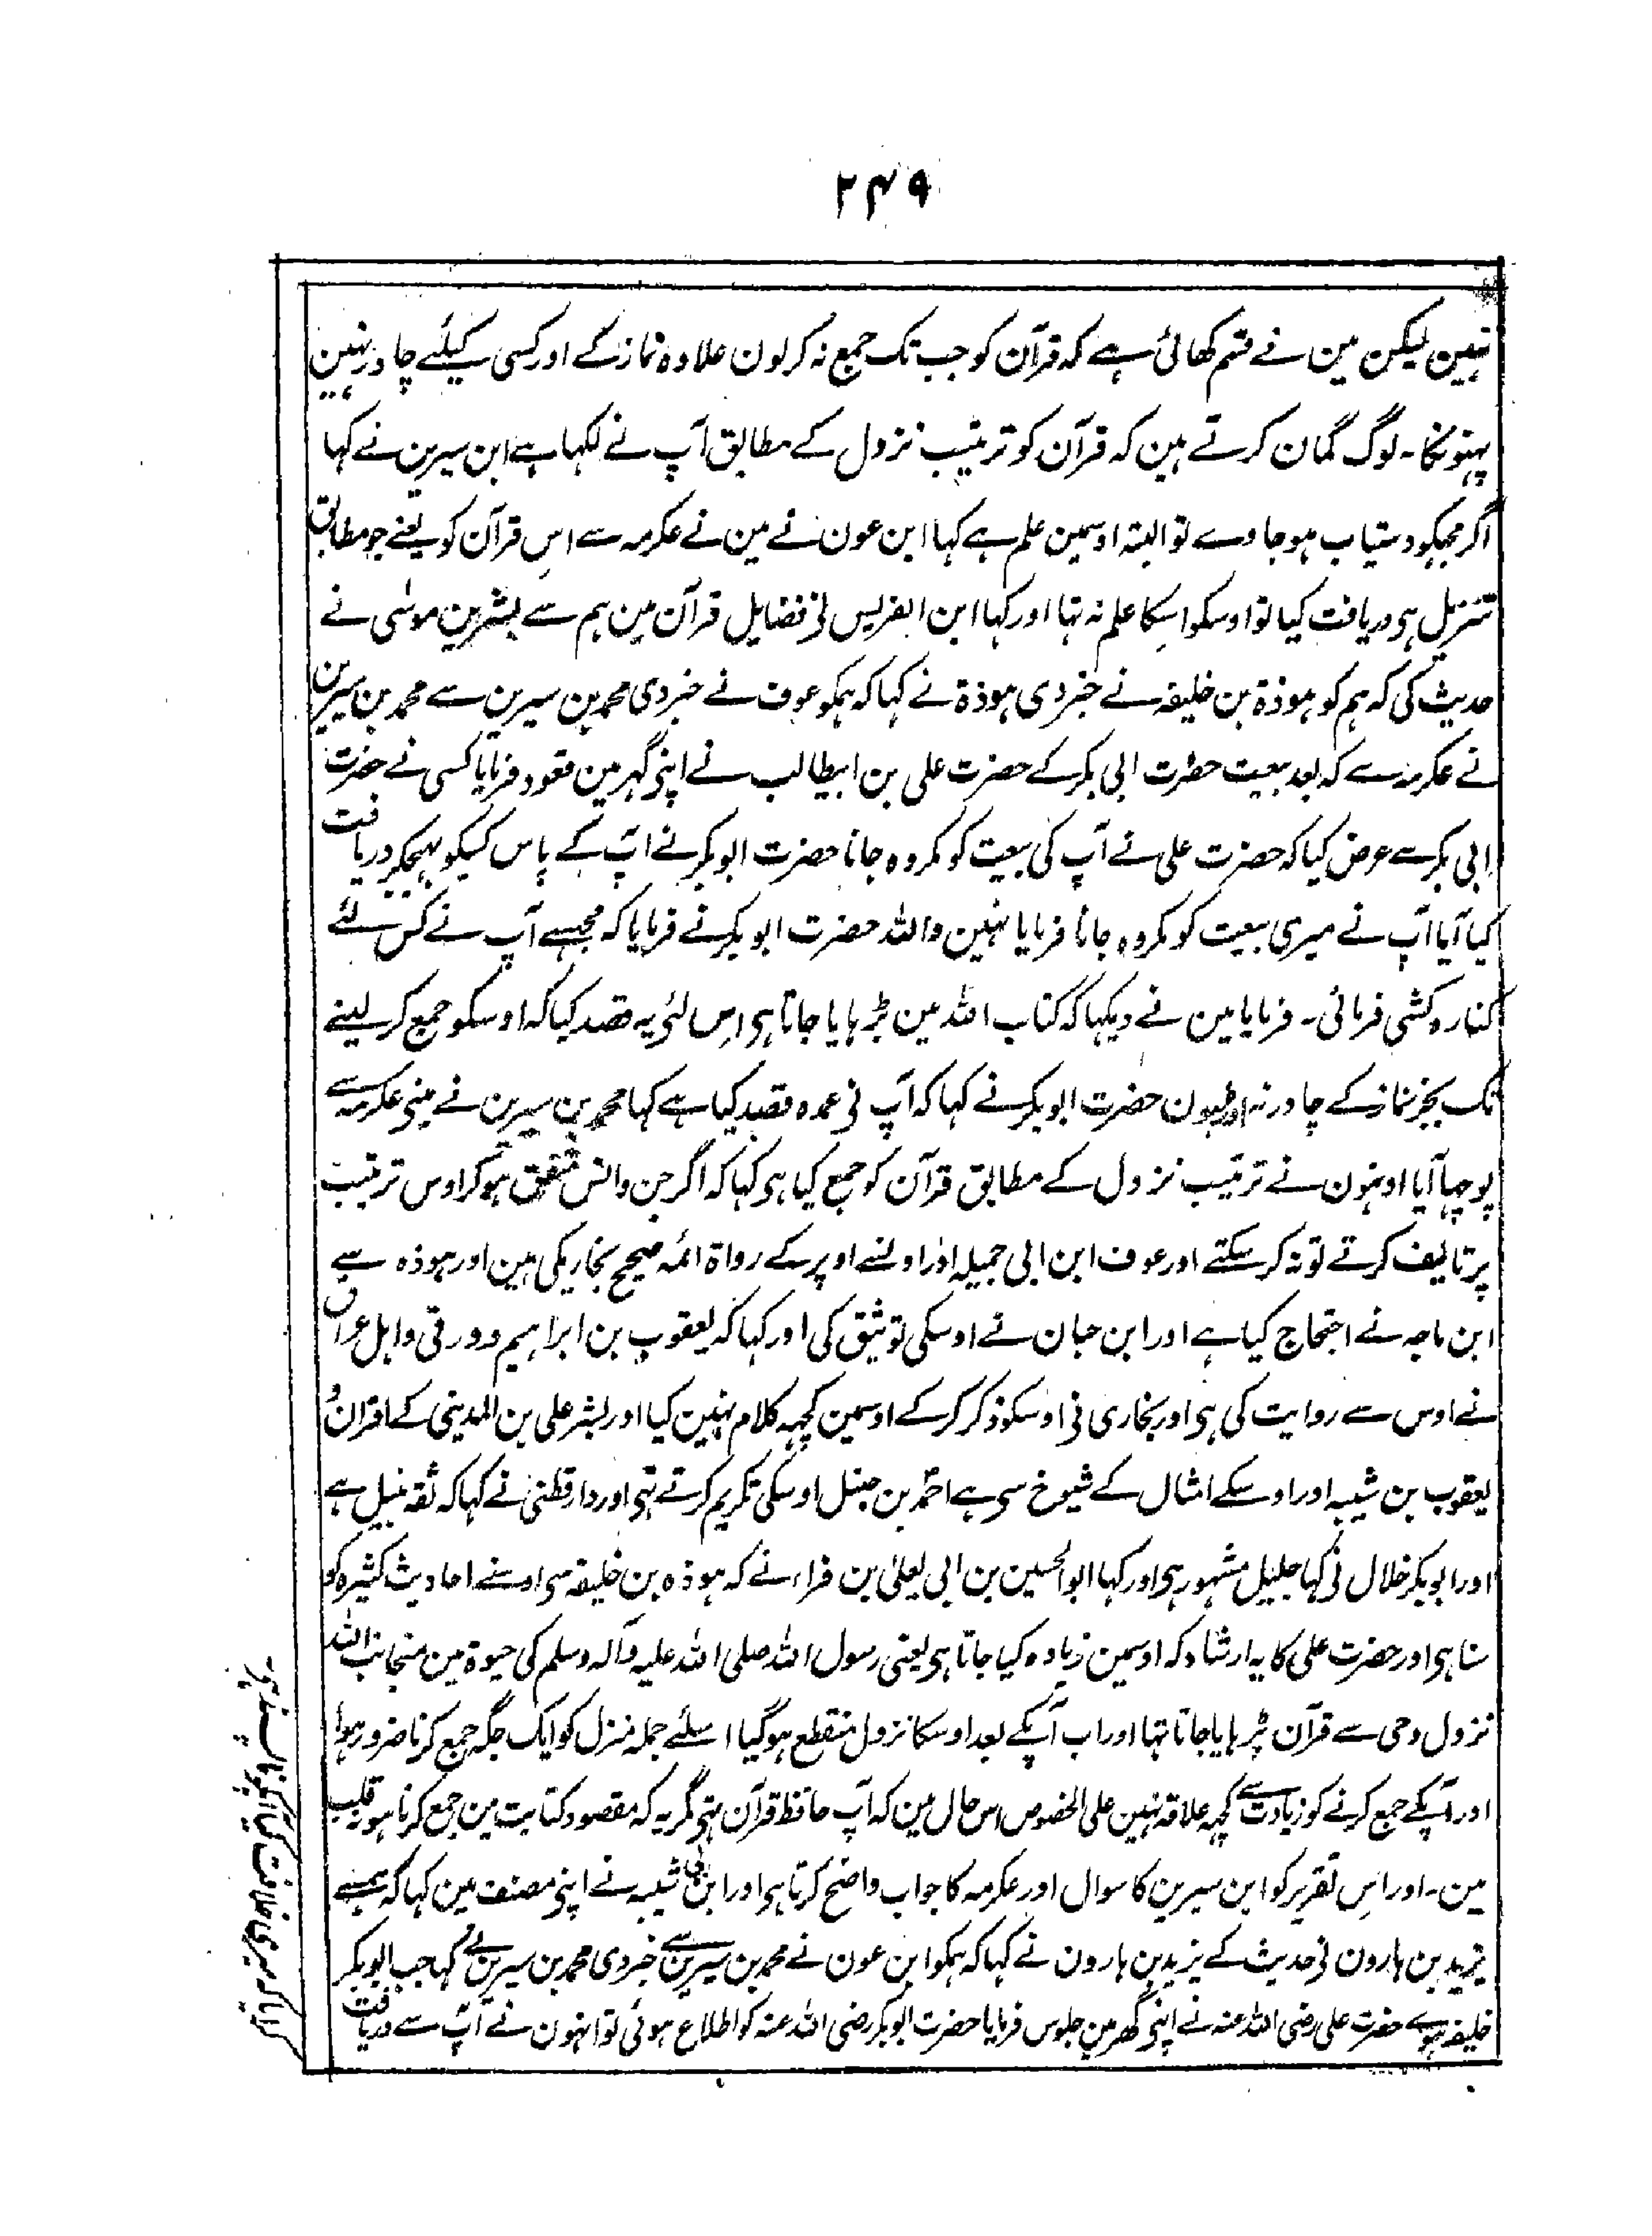 ۲۴۹
نہین لیکن مین نے قسم کھائی ہے کہ قرآن کو جب تک جمع نہ کرلون علاوہ نماز کے اور کسی کیلئے چادر نہین
پہنونگا۔ لوگ گمان کرتے ہین کہ قرآن کو ترتیب نزول کے مطابق آپ نے لکہا ہے ابن سیرین نے کہا
اگر مجہکو دستیاب ہوجاوے تو البتہ اوسمین علم ہے کہا ابن عون نے مین نے عکرمہ سے اس قرآن کو یعنے جو مطابق
تنزیل ہی دریافت کیا تو اوسکو اسکا علم نہ تہا اور کہا ابن الضریس نے فضایل قرآن مین ہم سے بشر بن موسٰی نے
حدیث کی کہ ہم کو ہوذۃ بن خلیفہ نے خبر دی ہوذۃ نے کہا کہ ہمکو عوف نے خبر دی محمد بن سیرین سے محمد بن سیرین
نے عکرمہ سے کہ بعد بیعت حضرت ابی بکر کے حضرت علی بن ابیطالب نے اپنی گہر مین قعود فرمایا کسی نے حضرت
ابی بکر سے عرض کیا کہ حضرت علی نے آپ کی بیعت کو مکروہ جانا حضرت ابوبکر نے آپ کے پاس کسیکو بہیجکر دریافت
کیا آیا آپ نے میری بیعت کو مکروہ جانا فرمایا نہین واللہ حضرت ابوبکر نے فرمایا کہ مجہسے آپ نے کس لئے
کنارہ کشی فرمائی۔ فرمایا مین نے دیکہا کہ کتاب اللہ مین بڑہایا جاتا ہی اس لئی یہ قصد کیا کہ اوسکو جمع کر لینے
تک بجز نماز کے چادر نہ اوڑہون حضرت ابوبکر نے کہا کہ آپ نی عمدہ قصد کیا ہے کہا محمد بن سیرین نے مینی عکرمہ سے
پوچہا آیا اونہون نے ترتیب نزول کے مطابق قرآن کو جمع کیا ہی کہا کہ اگر جن و انس متفق ہوکر اوس ترتیب
پر تالیف کرتے تو نہ کرسکتے اور عوف ابن ابی جمیلہ اور اونسے اوپر کے رواۃ ائمہ صحیح بخاریکی ہین اور ہوذہ سے
ابن ماجہ نے احتجاج کیا ہے اور ابن حبان نے اوسکی توثیق کی اور کہا کہ یعقوب بن ابراہیم دورقی و اہل عراق
نے اوس سے روایت کی ہی اور بخاری نی اوسکو ذکر کرکے اوسمین کچہہ کلام نہین کیا اور بشر علی بن المدینی کے اقران و
یعقوب بن شیبہ اور اوسکے امثال کے شیوخ سی ہے احمد بن حنبل اوسکی تکریم کرتے تہی اور دارقطنی نے کہا کہ ثقہ نبیل ہے
اور ابوبکر خلال نی کہا جلیل مشہور ہی اور کہا ابوالحسین بن ابی یعلیٰ بن فراء نے کہ ہوذہ بن خلیفہ سی اوسنے احادیث کثیرہ کو
سنا ہی اور حضرت علی کا یہ ارشاد کہ اوسمین زیادہ کیا جاتا ہی یعنی رسول اللہ صلی اللہ علیہ وآلہ وسلم کی حیوۃ مین منجانب اللہ
نزول وحی سے قرآن بڑہایا جاتا تہا اور اب آپکے بعد اوسکا نزول منقطع ہوگیا اسلئے جملہ منزل کو ایک جگہ جمع کرنا ضرور ہوا
اور آپکے جمع کرنے کو زیادت سے کچہہ علاقہ نہین علی الخصوص اس حال مین کہ آپ حافظ قرآن تہی مگر یہ کہ مقصود کتابت مین جمع کرنا ہو نہ قلب
مین۔ اور اس تقریر کو ابن سیرین کا سوال اور عکرمہ کا جواب واضح کرتا ہی اور ابن ابی شیبہ نے اپنی مصنف مین کہا کہ ہمسے
یزید بن ہارون نی حدیث کے یزید بن ہارون نے کہا کہ ہمکو ابن عون نے محمد بن سیرین سے خبر دی محمد بن سیرین نے کہا جب ابوبکر
خلیفہ ہوے حضرت علی رضی اللہ عنہ نے اپنی گھر مین جلوس فرمایا حضرت ابوبکر رضی اللہ عنہ کو اطلاع ہوئی تو انہون نے آپ سے دریافت